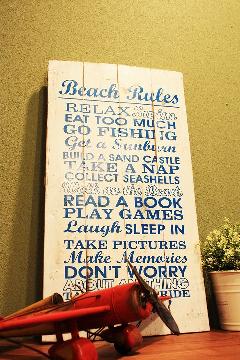 Beach Rules
RELAX in the Sun
EAT TOO MUCH
GO FISHING
Get a Sunburn
BUILD A SAND CASTLE
TAKE A NAP
COLLECT SEASHELLS
Walk on the Beach
READ A BOOK
PLAY GAMES
Laugh SLEEP IN
TAKE PICTURES
Make Memories
DON'T WORRY
ABOUT ANYTHING
RIDE